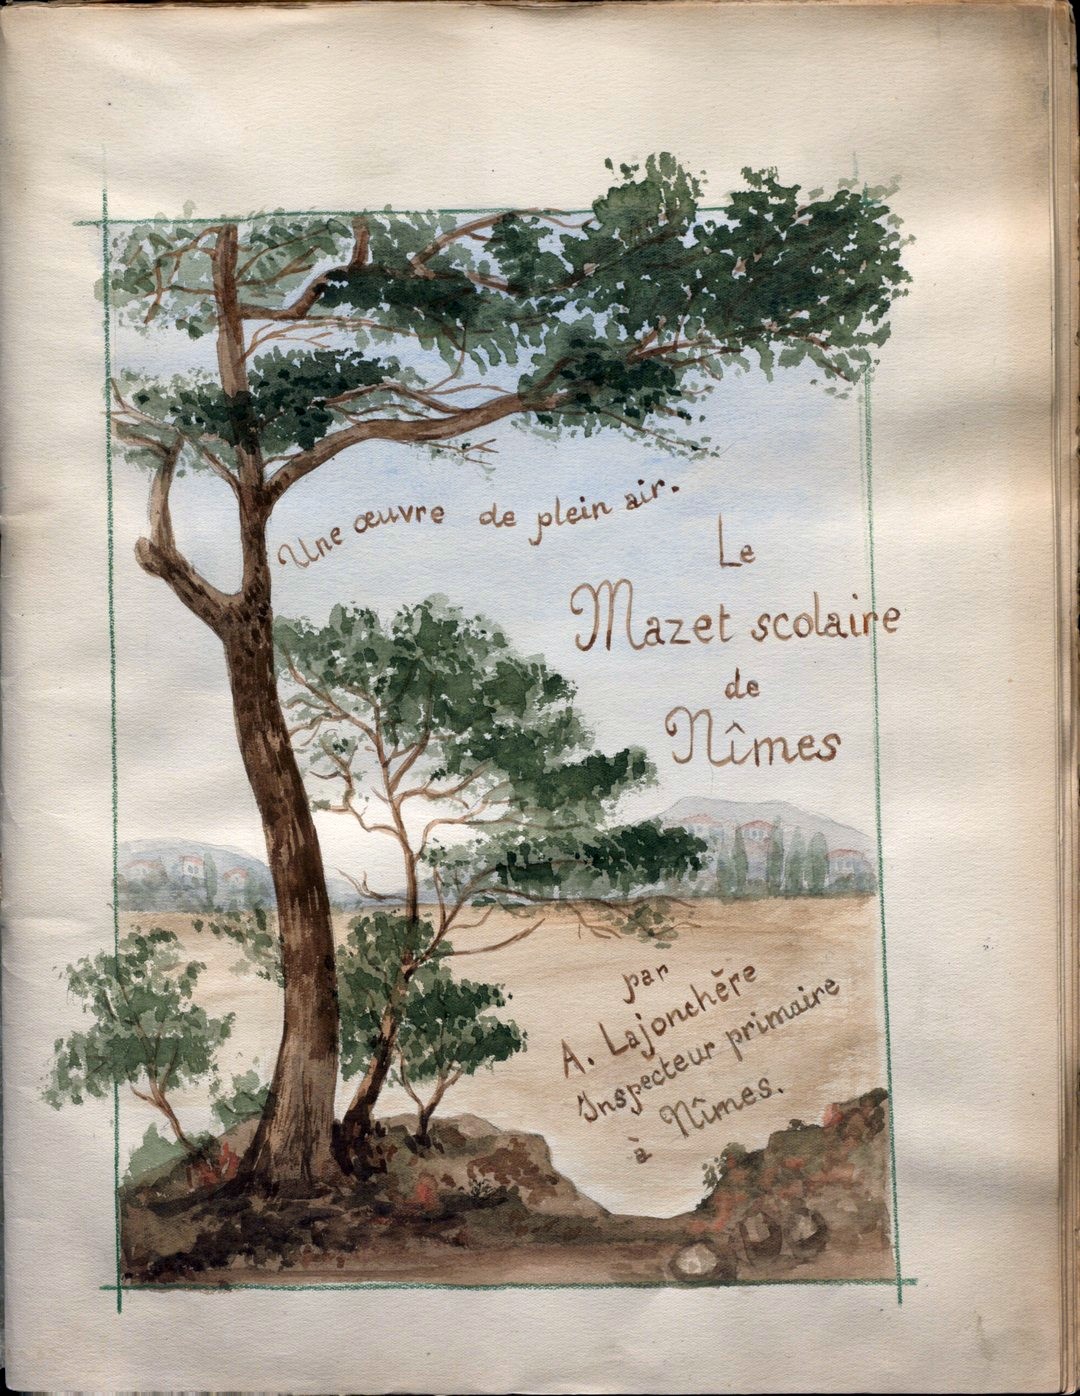 Une œuvre de plein air.
Le
Mazet scolaire
de
Nîmes
par
A. Lajonchère
Inspecteur primaire
à Nîmes.